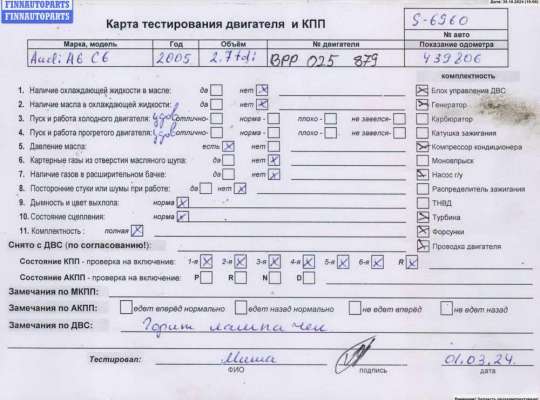 FINNAUTOPARTS
FINNAUTOPARTS
Карта тестирования двигателя и КПП
S-6960
№ авто
Марка, модель Год Объём № двигателя Показание одометра
Audi A6 C6 2005 2.7tdi BPP 025 879 439806
комплектность
1. Наличие охлаждающей жидкости в масле: да нет
Блок управления ДВС
2. Наличие масла в охлаждающей жидкости: да нет
Генератор
3. Пуск и работа холодного двигателя: удов отлично- норма - плохо - не завелся-
Карбюратор
4. Пуск и работа прогретого двигателя: удов отлично- норма - плохо - не завелся-
Катушка зажигания
5. Давление масла: есть нет
Компрессор кондиционера
6. Картерные газы из отверстия масляного щупа: да нет
Моновпрыск
7. Наличие газов в расширительном бачке: да нет
Насос г/у
8. Посторонние стуки или шумы при работе: да нет
Распределитель зажигания
9. Дымность и цвет выхлопа: норма
ТНВД
10. Состояние сцепления: норма
Турбина
11. Комплектность : полная
Форсунки
Снято с ДВС (по согласованию!):
Проводка двигателя
Состояние КПП - проверка на включение: 1-я 2-я 3-я 4-я 5-я 6-я R
Состояние АКПП - проверка на включение: P R N D
Замечания по МКПП:
Замечания по АКПП: едет вперёд нормально едет назад нормально не едет вперёд не едет назад
Замечания по ДВС: Горит лампа чек
Тестировал: Миша 01.03.24.
ФИО подпись дата